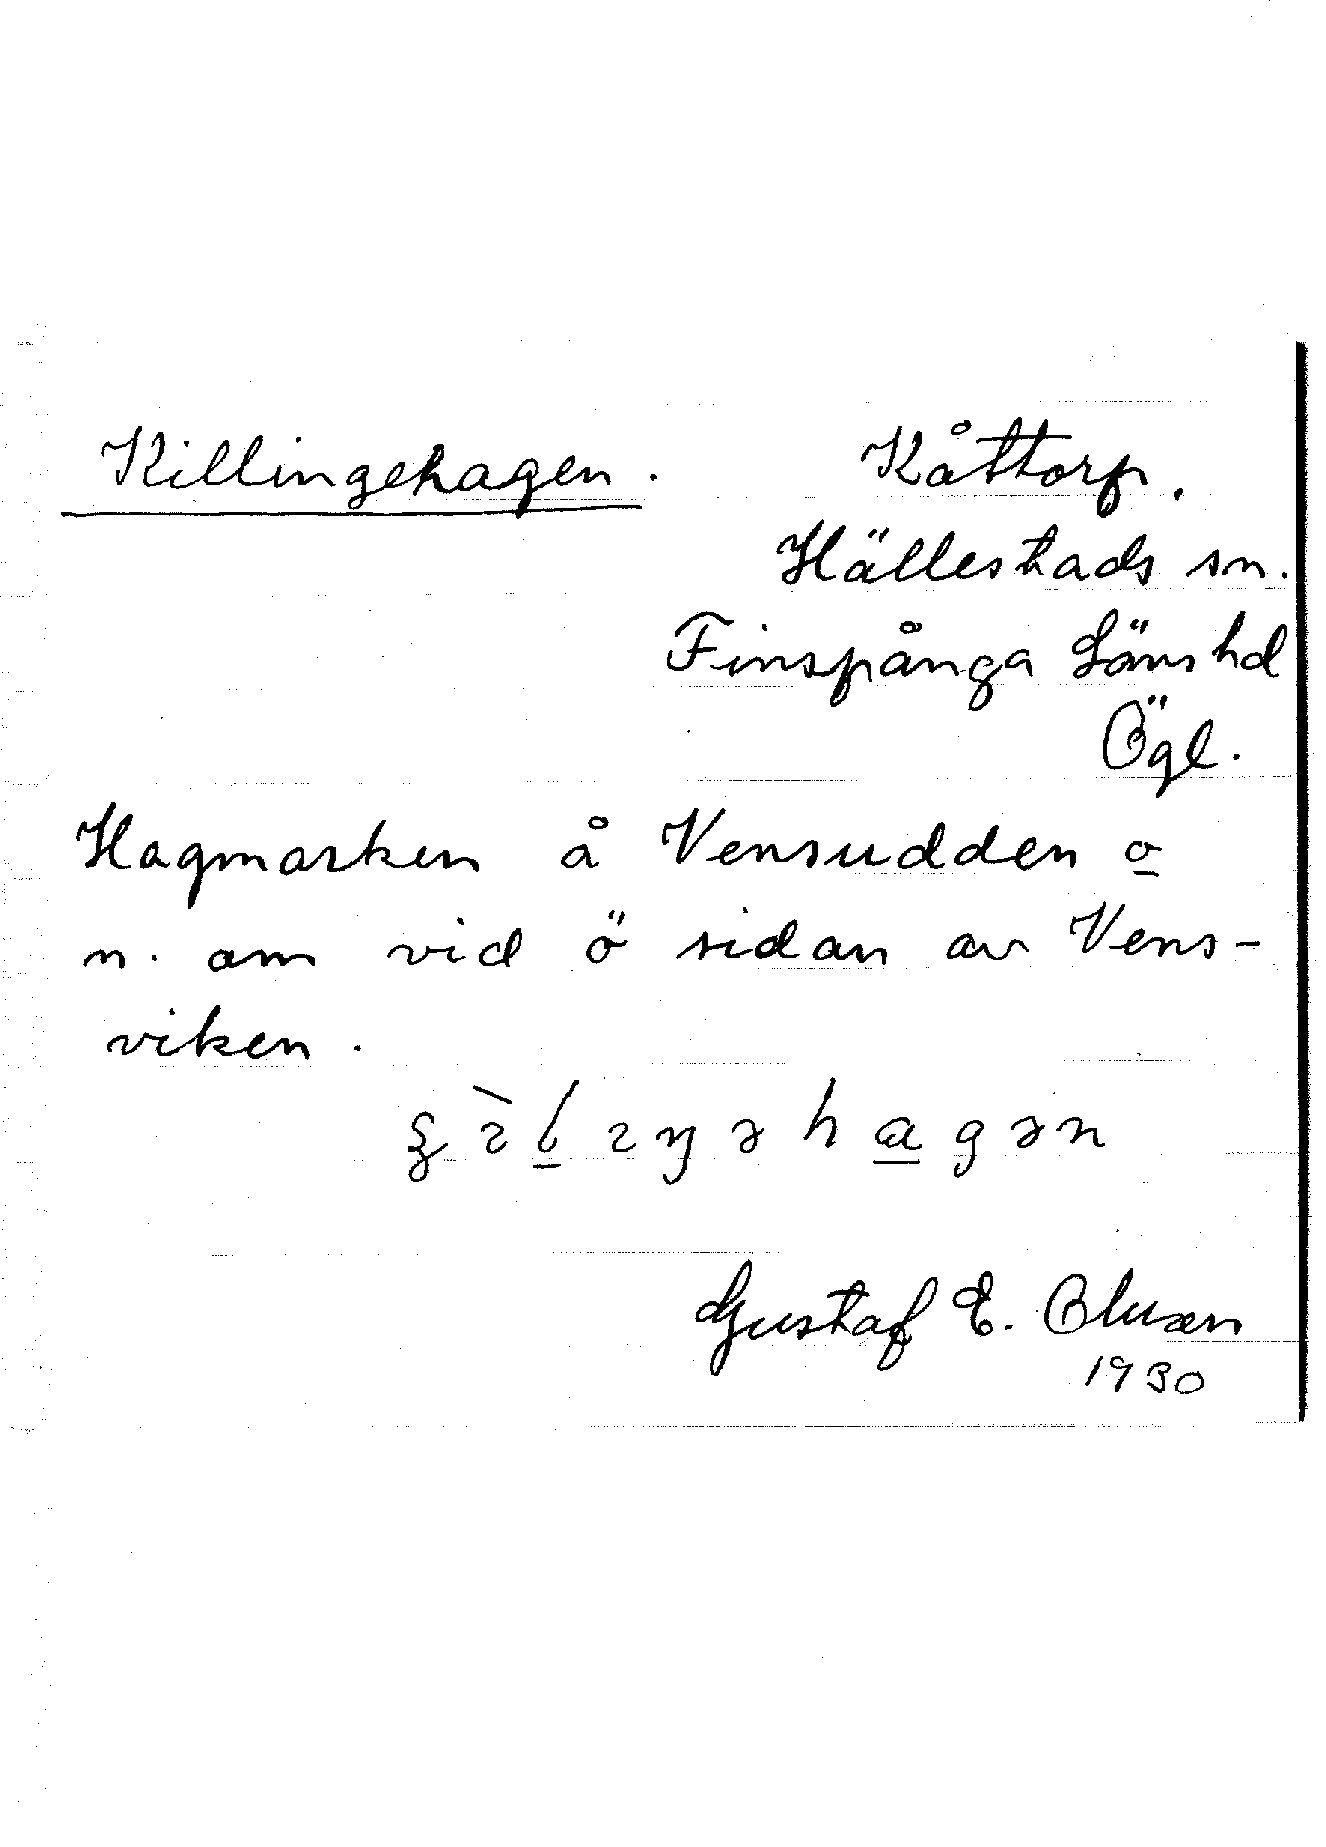 Killingehagen. Kåttorp.
Hällestads sn.
Finspånga Läns hd
Ögl.
Hagmarken å Vensudden o
n. om vid ö sidan av Vens-
viken.
Gustaf E.
1930